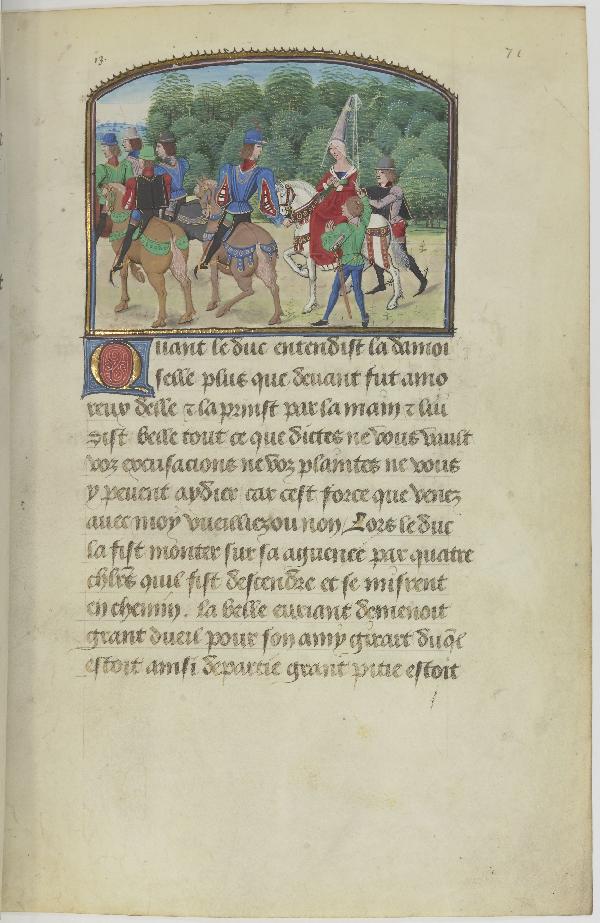 13.
71
Quant le duc entendist la damoi
selle plus que devant fut amo
reux delle ⁊ la prinst par la main ⁊ lui
dist belle tout ce que dictes ne vous vault
voz excusacions ne voz plaintes ne vous
y pevent aydier car cest force que venez
avec moy vueilliez ou non Lors le duc
la fist monter sur sa aguenee par quatre
chlr̄s quil fist descendre et se misrent
en chemin. la belle euriant demenoit
grant dueil pour son amy girart duql̄
estoit ainsi departie grant pitie estoit